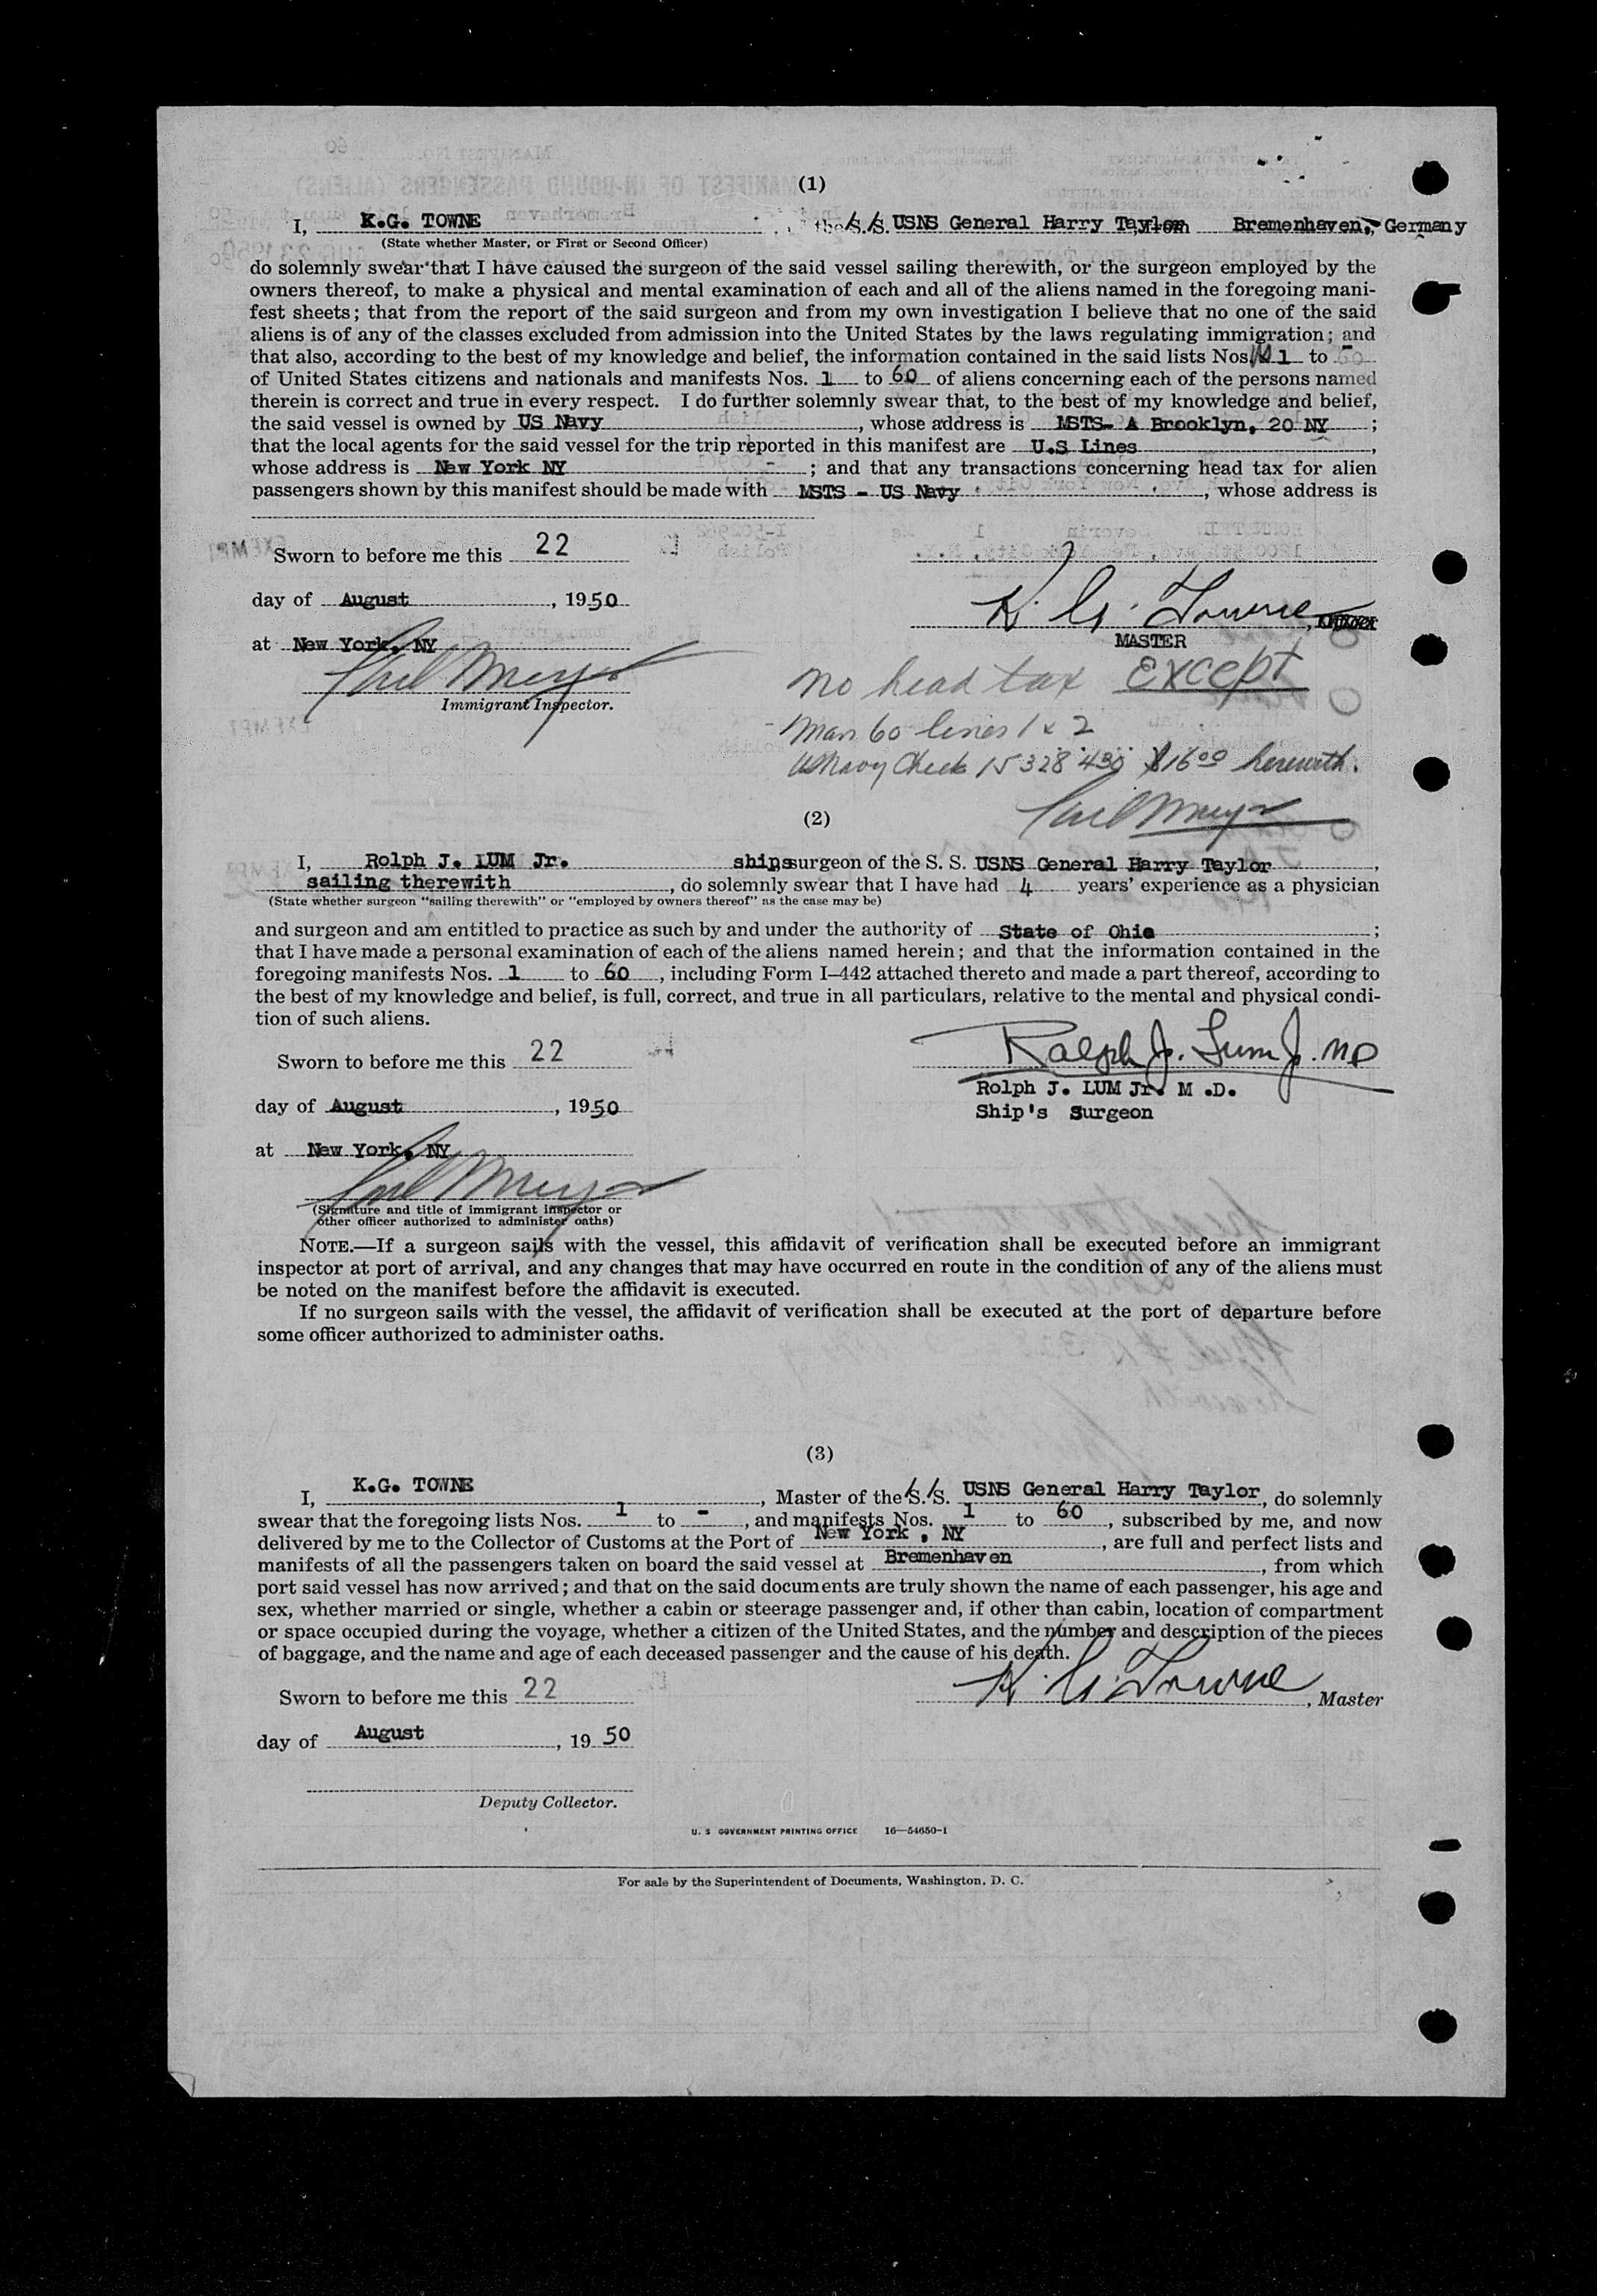 (1)
I, K.G. TOWNE the S.S. USNS General Harry Taylor Bremenhaven, Germany
(State whether Master, or First or Second Officer)
do solemnly swear that I have caused the surgeon of the said vessel sailing therewith, or the surgeon employed by the
owners thereof, to make a physical and mental examination of each and all of the aliens named in the foregoing mani-
fest sheets; that from the report of the said surgeon and from my own investigation I believe that no one of the said
aliens is of any of the classes excluded from admission into the United States by the laws regulating immigration; and
that also, according to the best of my knowledge and belief, the information contained in the said lists Nos. 1 to -
of United States citizens and nationals and manifests Nos. 1 to 60 of aliens concerning each of the persons named
therein is correct and true in every respect. I do further solemnly swear that, to the best of my knowledge and belief,
the said vessel is owned by US Navy, whose address is MSTS- A Brooklyn, 20 NY;
that the local agents for the said vessel for the trip reported in this manifest are U.S Lines,
whose address is New York NY -; and that any transactions concerning head tax for alien
passengers shown by this manifest should be made with MSTS - US Navy, whose address is
Sworn to before me this 22
day of August, 1950
K. G. Towne
at New York, NY
MASTER
Carl Meyer
Immigrant Inspector.
no head tax Except
- Man 60 lines 1 & 2
US Navy Check 15 328 430 $16 00 herewith.
Carl Meyer
(2)
I, Rolph J. LUM Jr. ships surgeon of the S. S. USNS General Harry Taylor,
sailing therewith, do solemnly swear that I have had 4 years' experience as a physician
(State whether surgeon "sailing therewith" or "employed by owners thereof" as the case may be)
and surgeon and am entitled to practice as such by and under the authority of State of Ohio;
that I have made a personal examination of each of the aliens named herein; and that the information contained in the
foregoing manifests Nos. 1 to 60, including Form I–442 attached thereto and made a part thereof, according to
the best of my knowledge and belief, is full, correct, and true in all particulars, relative to the mental and physical condi-
tion of such aliens.
Sworn to before me this 22
Ralph J. Lum Jr. MD
Rolph J. LUM Jr. M .D.
day of August, 1950
Ship's Surgeon
at New York, NY
Carl Meyer
(Signature and title of immigrant inspector or
other officer authorized to administer oaths)
NOTE.—If a surgeon sails with the vessel, this affidavit of verification shall be executed before an immigrant
inspector at port of arrival, and any changes that may have occurred en route in the condition of any of the aliens must
be noted on the manifest before the affidavit is executed.
If no surgeon sails with the vessel, the affidavit of verification shall be executed at the port of departure before
some officer authorized to administer oaths.
(3)
I, K.G. TOWNE, Master of the S.S. USNS General Harry Taylor, do solemnly
swear that the foregoing lists Nos. 1 to -, and manifests Nos. 1 to 60, subscribed by me, and now
delivered by me to the Collector of Customs at the Port of New York , NY, are full and perfect lists and
manifests of all the passengers taken on board the said vessel at Bremenhaven, from which
port said vessel has now arrived; and that on the said documents are truly shown the name of each passenger, his age and
sex, whether married or single, whether a cabin or steerage passenger and, if other than cabin, location of compartment
or space occupied during the voyage, whether a citizen of the United States, and the number and description of the pieces
of baggage, and the name and age of each deceased passenger and the cause of his death.
Sworn to before me this 22
K. G. Towne, Master
day of August, 19 50
Deputy Collector.
U. S GOVERNMENT PRINTING OFFICE 16—54650-1
For sale by the Superintendent of Documents, Washington, D. C.